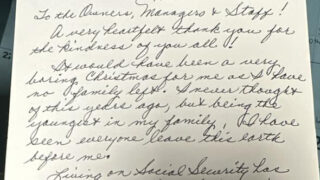 To the Owners, Managers & Staff!
A very heartfelt thank you for
the kindness of you all!!
It would have been a very
boring Christmas for me as I have
no family left. I never thought
of this years ago, but being the
youngist in my family, I have
seen everyone leave this earth
before me.
Living on Social Security has